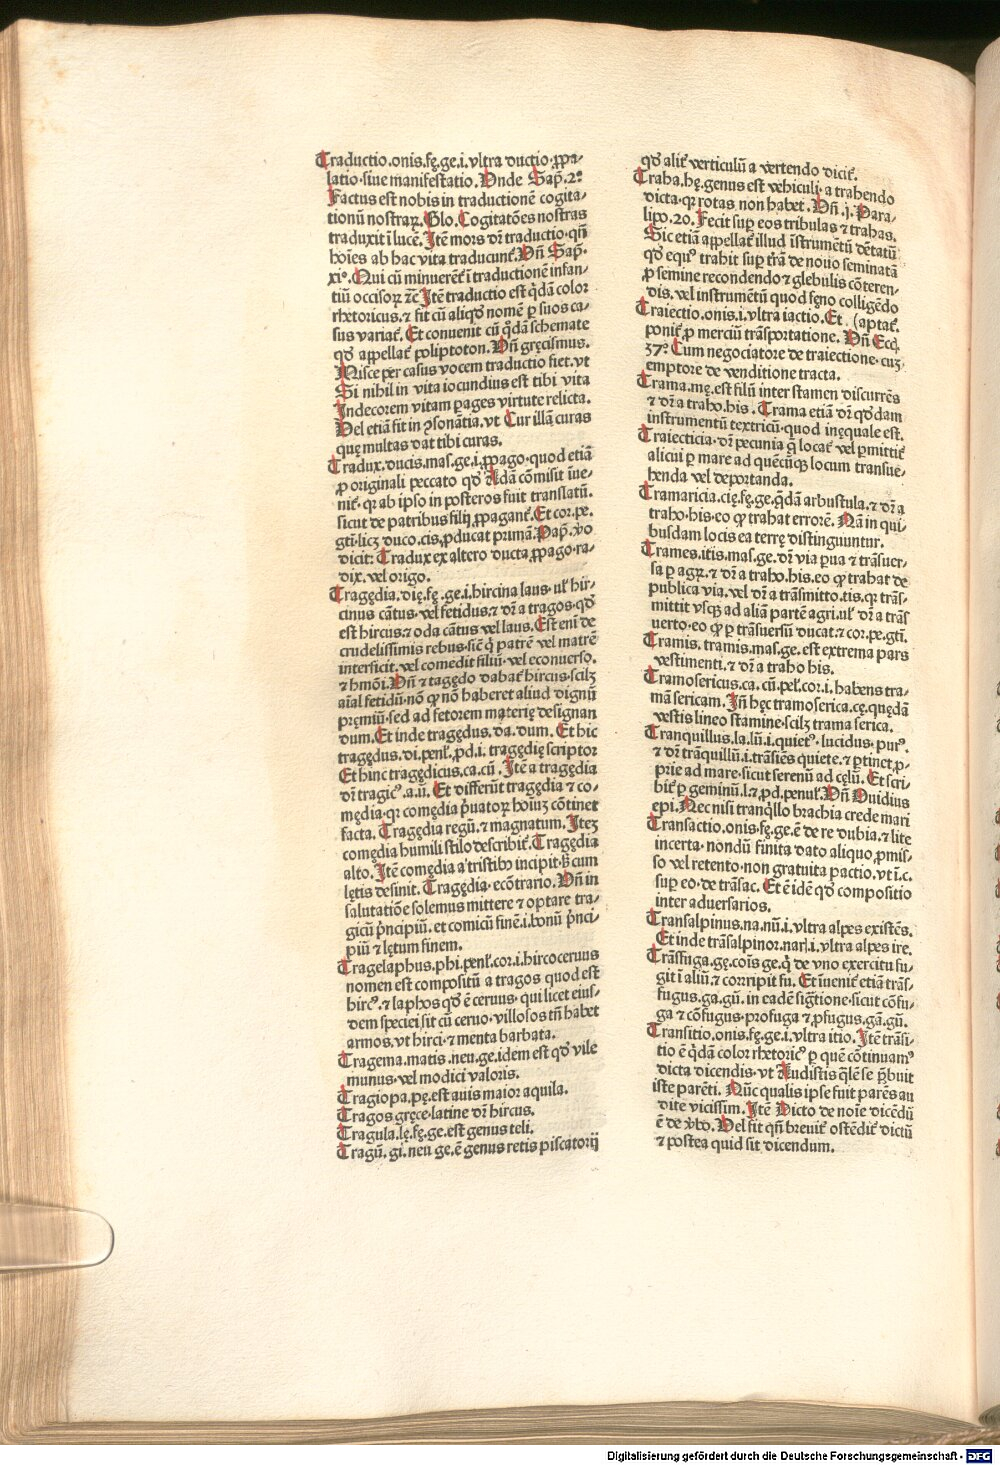 Traductio.onis.fę.ge.i.vltra ductio.ꝓpa-
latio.siue manifestatio. Vnde Sap̄.2º
Factus est nobis in traductionē cogita-
tionū nostraꝝ. Glo. Cogitatōes nostras
traduxit ī lucē. Itē mors dr̄ traductio.qn̄
hoīes ab hac vita traducunt̄. Vn̄ Sap̄.
xiº. Qui cū minuerēt̄ ī traductionē infan-
tiū occisoꝝ ⁊c̄ Itē traductio est q̄dā color
rhetoricus.⁊ fit cū aliqd̄ nomē ꝑ suos ca-
sus variat̄. Et conuenit cū q̄dā schemate
qd̄ appellat̄ poliptoton. Vn̄ gręcismus.
Misce per casus vocem traductio fiet.vt
Si nihil in vita iocundius est tibi vita
Indecorem vitam ꝑages virtute relicta.
Vel etiā fit in ꝯsonātia.vt Cur illā curas
quę multas dat tibi curas.
Tradux.ducis.mas.ge.i.ꝓpago.quod etiā
ꝓ originali peccato qd̄ Adā cōmisit īue-
nit̄.qr ab ipso in posteros fuit translatū.
sicut de patribus filij ꝓpagant̄. Et cor.pe.
gtī.licȝ duco.cis.ꝓducat primā. Pap̄.v̄o
dicit: Tradux ex altero ducta ꝓpago.ra-
dix.vel origo.
Tragędia.dię.fę.ge.i.hircina laus.ul̄ hir-
cinus cātus.vel fetidus.⁊ dr̄ a tragos.qd̄
est hircus.⁊ oda cātus vel laus. Est eni de
crudelissimis rebus.sic̄ q̇ patrē vel matrē
interficit.vel comedit filiū.vel econuerso.
⁊ hmōi. Vn̄ ⁊ tagędo dabat̄ hircus.scilȝ
aīal fetidū.nō ꝙ nō haberet aliud dignū
pręmiū.sed ad fetorem materię designan
dum. Et inde tragędus.da.dum. Et hic
tragędus.di.penl̄.ꝓd.i.tragędię scriptor
Et hinc tragędicus.ca.cū. Itē a tragędia
dr̄ tragicꝰ.a.ū. Et differūt tragędia ⁊ co-
mędia.qr comędia p̄uatoꝝ hoīuȝ cōtinet
facta. Tragędia regū.⁊ magnatum. Iteȝ
comędia humili stilo describit̄. Tragędia
alto. Itē comędia a tristibꝰ incipit.sȝ cum
lętis desinit. Tragędia.ecōtrario. Vn̄ in
salutatiōe solemus mittere ⁊ optare tra-
gicū p̄ncipiū.et comicū finē.i.bonū p̄nci-
piū ⁊ lętum finem.
Tragelaphus.phi.penl̄.cor.i.hircoceruus
nomen est compositū a tragos quod est
hircꝰ.⁊ laphos qd̄ ē ceruus.qui licet eius-
dem speciei sit cū ceruo.villosos tn̄ habet
armos.vt hirci.⁊ menta barbata.
Tragema.matis.neu.ge.idem est qd̄ vile
munus.vel modici valoris.
Tragiopa.pę.est auis maior aquila.
Tragos gręce.latine dr̄ hircus.
Tragula.lę.fę.ge.est genus teli.
Tragū.gi.neu ge.ē genus retis piscatorij
qd̄ alit̄ verticulū a vertendo dicit̄.
Traha.hę.genus est vehiculi.a trahendo
dicta.qr rotas non habet. Vn̄.j. Para-
lipo.20. Fecit suꝑ eos tribulas ⁊ trahas.
Sic etiā appellat̄ illud īstrumētū dētatū
qd̄ equꝰ trahit suꝑ trā̄ de nouo seminatā
ꝓ semine recondendo ⁊ glebulis cōteren-
dis.vel instrumētū quod fęno colligēdo
Traiectio.onis.i.vltra iactio. Et (aptat̄.
ponit̄ ꝓ merciū trāsportatione. Vn̄ Eccī.
37º. Cum negociatore de traiectione.cuȝ
emptore de venditione tracta.
Trama.mę.est filū inter stamen discurrēs
⁊ dr̄ a traho.his. Trama etiā dr̄ qd̄dam
instrumentū textricū.quod inęquale est.
Traiecticia.dr̄ pecunia q̄ locat̄ vel ꝑmittit̄
alicui ꝑ mare ad quēcūqȝ locum transue-
henda vel deportanda.
Tramaricia.cię.fę.ge.q̄dā arbustula.⁊ dr̄ a
traho.his.eo ꝙ trahat errorē. Nā in qui-
busdam locis ea terrę distinguuntur.
Trames.itis.mas.ge.dr̄ via ꝑua ⁊ trāsuer-
sa ꝑ agꝝ.⁊ dr̄ a traho.his.eo ꝙ trahat de
publica via.vel dr̄ a trāsmitto.tis.qr trās-
mittit vsqȝ ad aliā partē agri.ul̄ dr̄ a trās
uerto.eo ꝙ ꝑ trāsuersū ducat.⁊ cor.pe.gtī.
Tramis.tramis.mas.ge.est extrema pars
vestimenti.⁊ dr̄ a traho his.
Tramosericus.ca.cū.pel̄.cor.i.habens tra-
mā sericam. Īn̄ hęc tramoserica.cę.quędā
vestis lineo stamine.scilȝ trama serica.
Tranquillus.la.lū.i.quietꝰ.lucidus.purꝰ.
⁊ dr̄ trāquillū.i.trāsiēs quiete.⁊ ꝑtinet ꝓ-
prie ad mare.sicut serenū ad cęlū. Et scri-
bit̄ ꝑ geminū.l.⁊ ꝓd.penul̄. Vn̄ Ouidius
epi. Nec nisi tranq̇llo brachia crede mari
Transactio.onis.fę.ge.ē de re dubia.⁊ lite
incerta.nondū finita dato aliquo ꝓmis-
so vel retento.non gratuita pactio.vt ī.c.
suꝑ eo.de trāsac. Et ē idē qd̄ compositio
inter aduersarios.
Transalpinus.na.nū.i.vltra alpes existēs.
Et inde trāsalpinor.narl.i.vltra alpes ire.
Trāsfuga.gę.cois ge.q̇ de vno exercitu fu-
git ī aliū.⁊ corripit fu. Et īuenit̄ etiā trās-
fugus.ga.gū.in eadē sīgtione.sicut cōfu-
ga ⁊ cōfugus.profuga ⁊ ꝓfugus.gā.gū.
Transitio.onis.fę.ge.i.vltra itio. Itē trāsi-
tio ē q̄dā color rhetoricꝰ ꝑ quē cōtinuamꝰ
dicta dicendis.vt Audistis qlē se p̄buit
iste parēti. Nūc qualis ipse fuit parēs au
dite vicissim. Itē Dicto de noīe dicēdū
ē de v̄bo. Vel fit qn̄ breuit̄ ostēdit̄ dictū
⁊ postea quid sit dicendum.
Digitalisierung gefördert durch die Deutsche Forschungsgemeinschaft - DFG